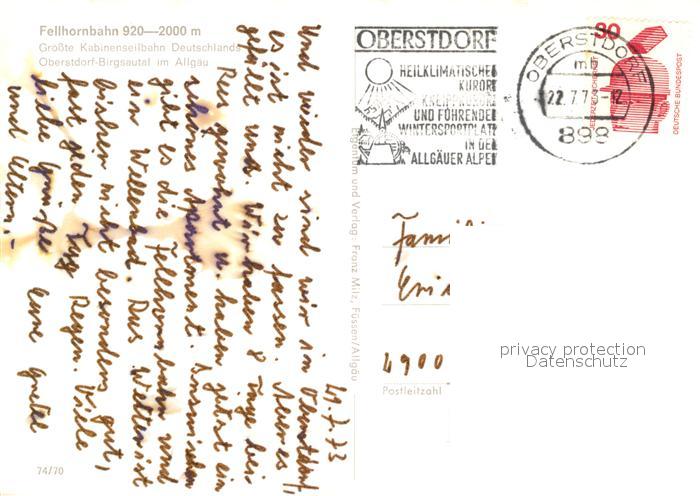 Fellhornbahn 920—2000 m
Größte Kabinenseilbahn Deutschlands
Oberstdorf-Birgsautal im Allgäu
OBERSTDORF
HEILKLIMATISCHER
KURORT
KNEIPPKURORT
UND FÜHRENDER
WINTERSPORTPLATZ
IN DEN
ALLGÄUER ALPEN
OBERSTDORF
22.7.7
-12
898
30
DEUTSCHE BUNDESPOST
Eigentum und Verlag: Franz Milz, Füssen/Allgäu
Und wieder sind wir in Oberstdorf,
es ist nicht zu fassen.
gefällt uns. Wir haben 8 Tage bei
gewohnt u. haben jetzt ein
schönes Apartment. Inzwischen
gibt es die Fellhornbahn und
ein Wellenbad. Das Wetter ist
bisher nicht besonders gut,
fast jeden Tag Regen. Viele
liebe Grüße Eure Gretel
und Eltern
Fami
4900
Postleitzahl
74/70
privacy protection
Datenschutz